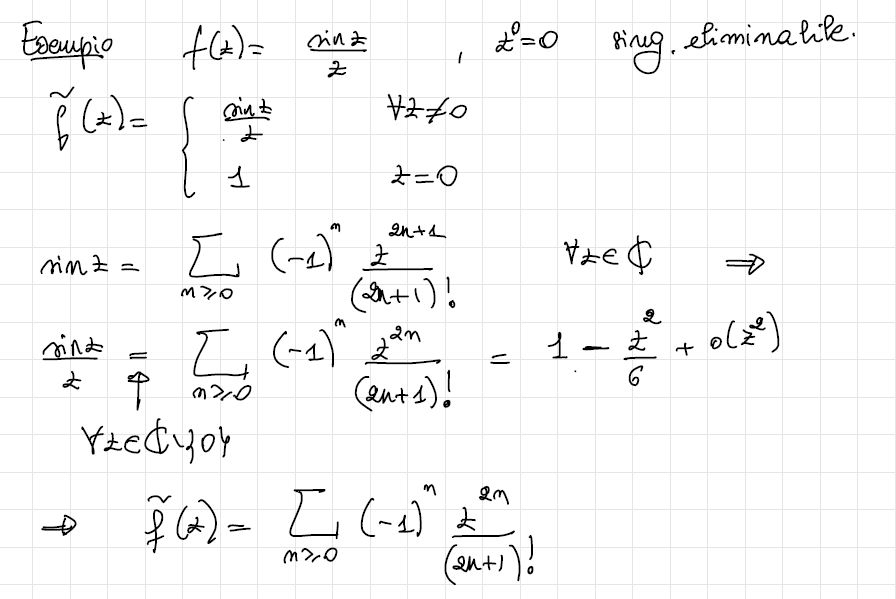 Esempio f(z) = sin z / z , z⁰=0 sing. eliminabile.
f̃(z) = { sin z / z ∀z≠0
1 z=0
sin z = ∑_{n≥0} (-1)^n z^{2n+1} / (2n+1)! ∀z∈ℂ ⇒
sin z / z = ∑_{n≥0} (-1)^n z^{2n} / (2n+1)! = 1 - z²/6 + o(z²)
↑
∀z∈ℂ\{0}
⇒ f̃(z) = ∑_{n≥0} (-1)^n z^{2n} / (2n+1)!